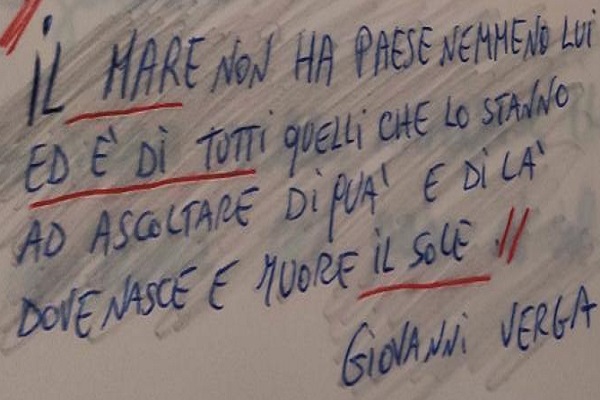 IL MARE NON HA PAESE NEMMENO LUI
ED È DI TUTTI QUELLI CHE LO STANNO
AD ASCOLTARE DI QUA' E DI LA'
DOVE NASCE E MUORE IL SOLE //
GIOVANNI VERGA